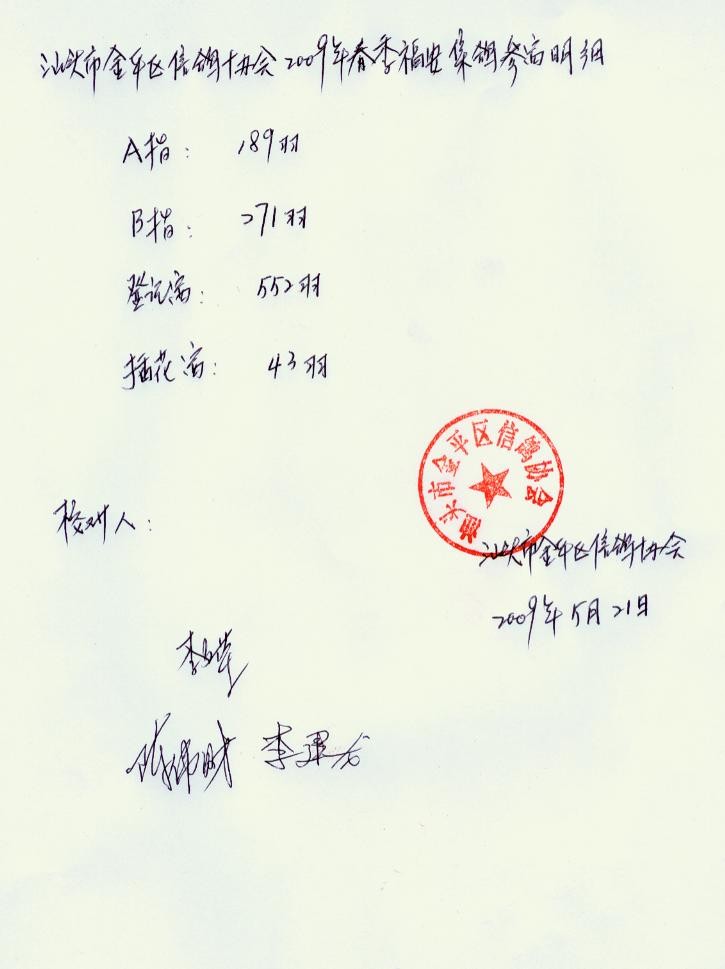 汕头市金平区信鸽协会2009年春季福安集鸽参赛明细
A指: 189羽
B指: 271羽
登记赛: 552羽
插花赛: 43羽
汕头市金平区信鸽协会
校对人:
汕头市金平区信鸽协会
2009年5月21日